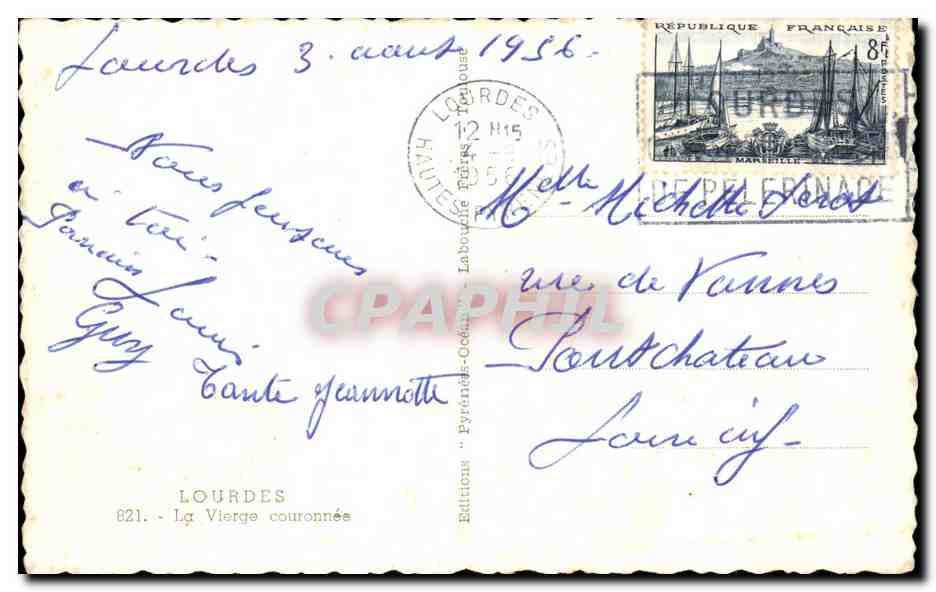 Lourdes 3 aout 1956
RÉPUBLIQUE FRANÇAISE
8F
POSTES
MARSEILLE
LOURDES
12 H15
1956
HAUTES
DE PELERINAGE
Nous pensons
à toi.
Parrain Louis
Guy
Tante Jeannette
Melle Michelle
rue de Vannes
Pontchateau
Loire inf
CPAPHIL
LOURDES
821. - La Vierge couronnée
Editions "Pyrénées-Océan" - Labouche Frères, Toulouse